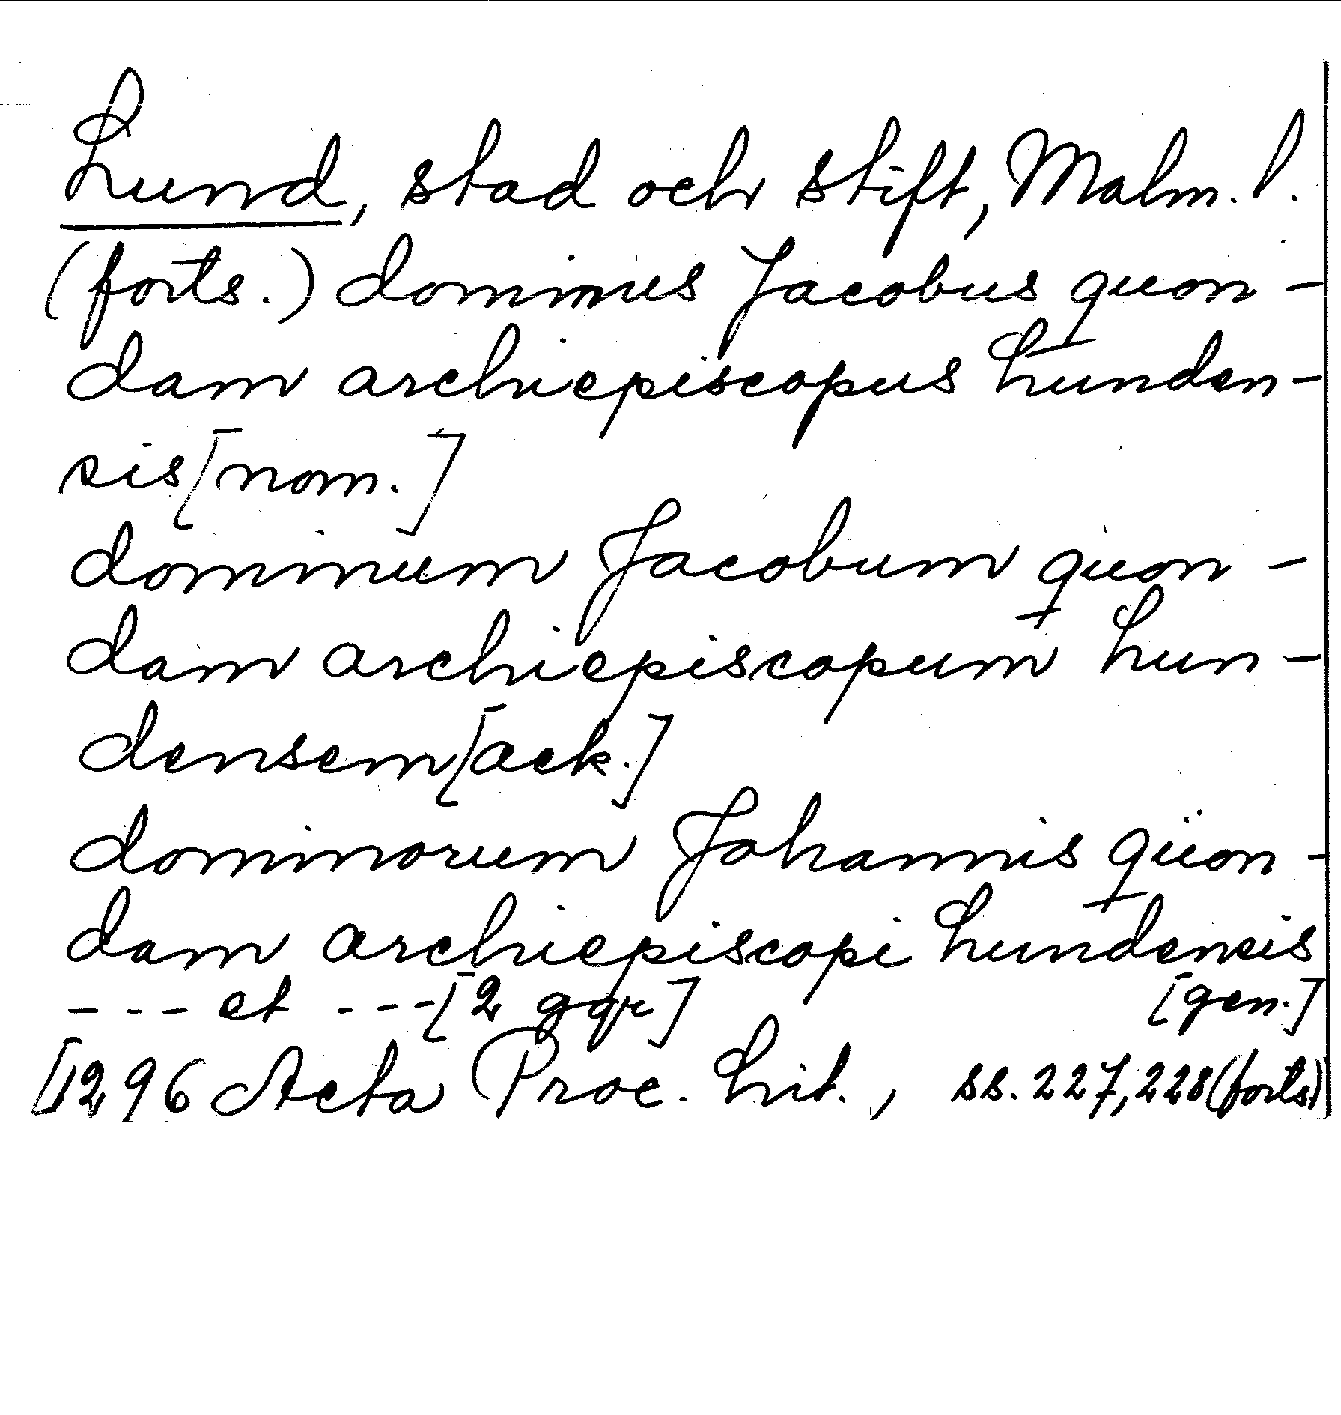 Lund, stad och stift, Malm. l.
(forts.) dominus Jacobus quon-
dam archiepiscopus Lunden-
sis [nom.]
dominum Jacobum quon-
dam archiepiscopum Lun-
densem [ack.]
dominorum Johannis quon-
dam archiepiscopi Lundensis
--- et --- [2 ggr] [gen.]
[1296 Acta Proc. Lit., ss. 227, 228 (forts)